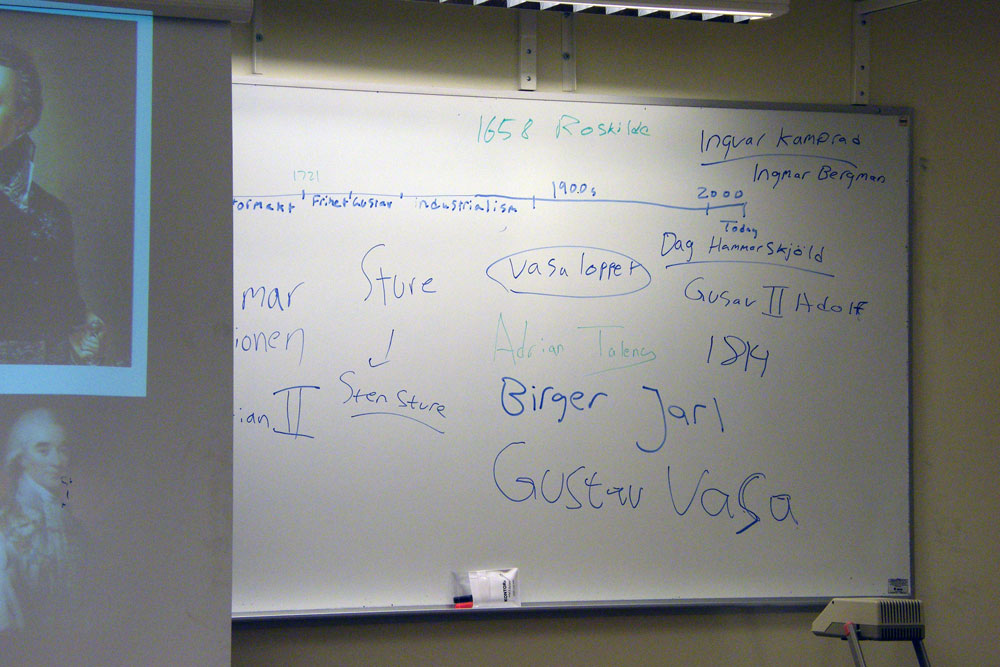 1658 Roskilde
Ingvar Kamprad
Ingmar Bergman
1721
1900s
2000
ormakt Frihet Gustav industrialism
Today
Dag Hammarskjöld
Vasaloppet
Sture
Gusav II Adolf
mar
ionen
Adrian
1814
Sten Sture
Birger Jarl
ian II
Gustav Vasa
KONTOR